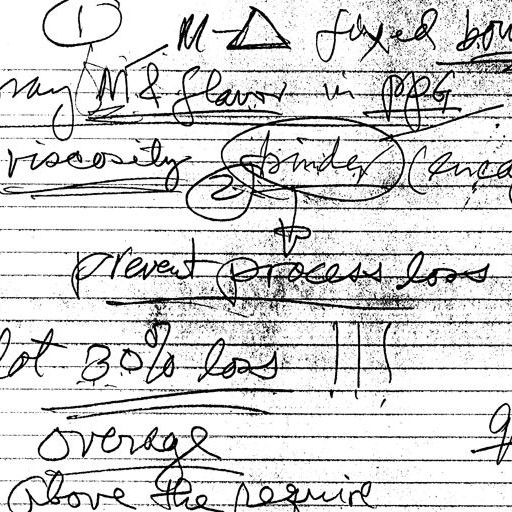 ① M-△ fixed
M & flavor in PPG
viscosity ② binder
prevent process loss
30% loss !!!
overage
above the require